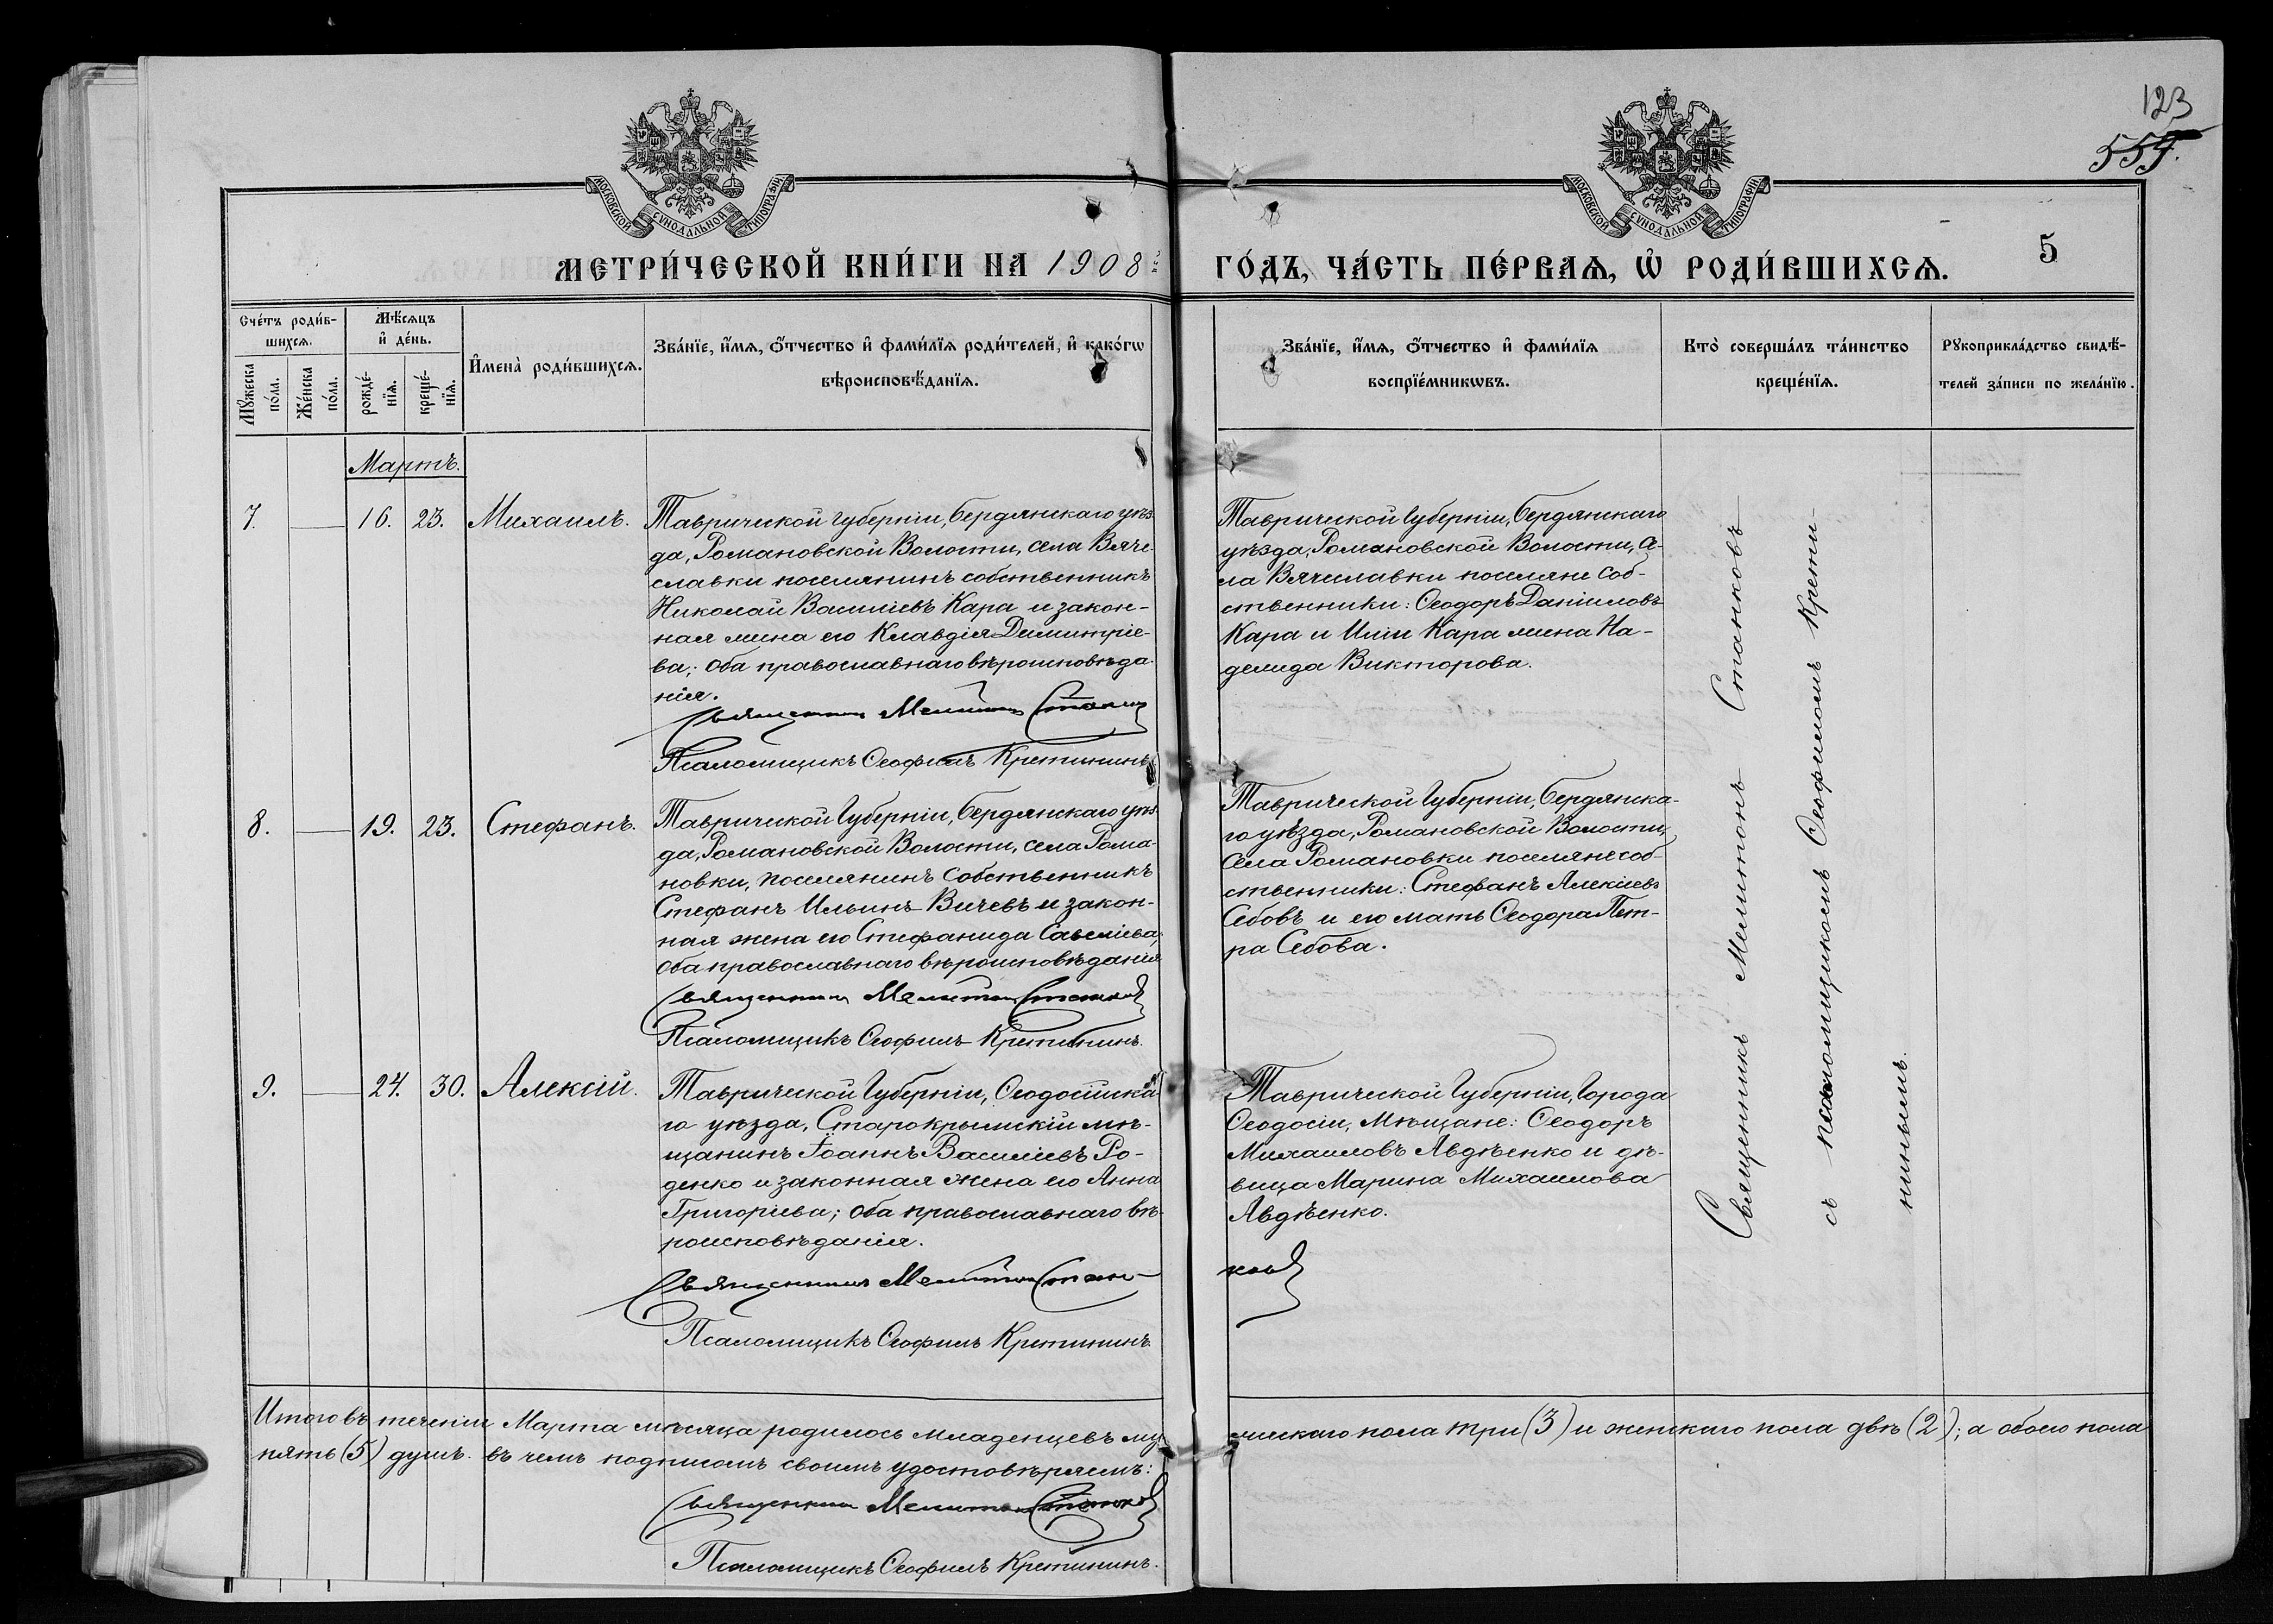 123
559.
МОСКОВСКОЙ СѴНОДАЛЬНОЙ ТИПОГРАФІИ
МОСКОВСКОЙ СѴНОДАЛЬНОЙ ТИПОГРАФІИ
МЕТРИ́ЧЕСКОЙ КНИ́ГИ НА 1908 й
ГО́ДЪ, ЧА́СТЬ ПЕ́РВАѦ, Ѡ҆ РОДИ́ВШИХСѦ.
5
Сче́тъ роди́в-
шихсѧ.
Мѣ́сѧцъ
и҆ де́нь.
Мꙋ́жеска
по́ла.
Же́нска
по́ла.
рожде́-
нїѧ.
креще́-
нїѧ.
И҆мена̀ роди́вшихсѧ.
Зва́нїе, и҆́мѧ, ѻ҆́тчество и҆ фами́лїѧ роди́телей, и҆ како́гѡ
вѣроисповѣ́данїѧ.
Зва́нїе, и҆́мѧ, ѻ҆́тчество и҆ фами́лїѧ
воспрїе́мникѡвъ.
Кто̀ соверша́лъ та́инство
креще́нїѧ.
Рꙋкоприкла́дство свидѣ́-
телей за́писи по жела́нїю.
Мартъ.
7. 16. 23. Михаилъ.
Таврической Губерніи, Бердянскаго уѣз-
да, Романовской Волости, села Вяче-
славки поселянинъ собственникъ
Николай Василіевъ Кара и закон-
ная жена его Клавдія Димитріе-
ва; оба православнаго вѣроисповѣда-
нія.
Священникъ Мелитонъ Станков
Псаломщикъ Ѳеофилъ Кретининъ
Таврической Губерніи, Бердянскаго
уѣзда, Романовской Волости, се-
ла Вячеславки поселяне соб-
ственники: Ѳеодоръ Даніиловъ
Кара и Иліи Кара жена На-
делида Викторова.
8. 19. 23. Стефанъ.
Таврической Губерніи, Бердянскаго уѣз-
да, Романовской Волости, села Рома-
новки, поселянинъ Собственникъ
Стефанъ Ильинъ Вичевъ и закон-
ная жена его Стефанида Савеліева;
оба православнаго вѣроисповѣданія
Священникъ Мелитонъ Станков
Псаломщикъ Ѳеофилъ Кретининъ.
Таврической Губерніи, Бердянска-
го уѣзда, Романовской Волости,
села Романовки поселяне соб-
ственники: Стефанъ Алексіевъ
Себовъ и его мать Ѳеодора Пет-
ра Себова.
9. 24. 30. Алексій.
Таврической Губерніи, Ѳеодосійска-
го уѣзда, Старокрымскій мѣ-
щанинъ Іоаннъ Василіевъ Ро-
денко и законная жена его Анна
Григоріева; оба православнаго вѣ-
роисповѣданія.
Священникъ Мелитонъ Стан-
ков
Псаломщикъ Ѳеофилъ Кретининъ.
Таврической Губерніи, Города
Ѳеодосіи, Мѣщане: Ѳеодоръ
Михаиловъ Авдѣенко и дѣ-
вица Марина Михаилова
Авдѣенко.
Священникъ Мелитонъ Станковъ
съ псаломщикомъ Ѳеофиломъ Крети-
нинымъ.
Итого въ теченіи Марта мѣсяца родилось младенцевъ му-
жескаго пола три (3) и женскаго пола двѣ (2); а обоего пола
пять (5) душъ. въ чемъ подписомъ своимъ удостовѣряемъ:
Священникъ Мелитонъ Станков
Псаломщикъ Ѳеофилъ Кретининъ.